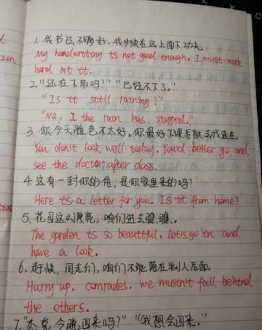 1. 我书写不够好，我必须在这上面下功夫。
My handwriting is not good enough. I must work
hard at it.
2. "还在下雨吗？" "已经不下了。"
"Is it still raining?"
"No, the rain has stopped."
3. 你今天脸色不太好，你最好下课去
You don't look well today. You'd better go and
see the doctor after class.
4. 这有一封你的信，是你家里来的吗？
Here is a letter for you. Is it from home?
5. 花园这么漂亮，咱们进去
The garden is so beautiful. Let's go in and
have a look.
6. 赶快，同志们，咱们不能落在别人后面。
Hurry up, comrades, we mustn't fall behind
the others.
7. 今晚回来吗？" "我想会回来。"